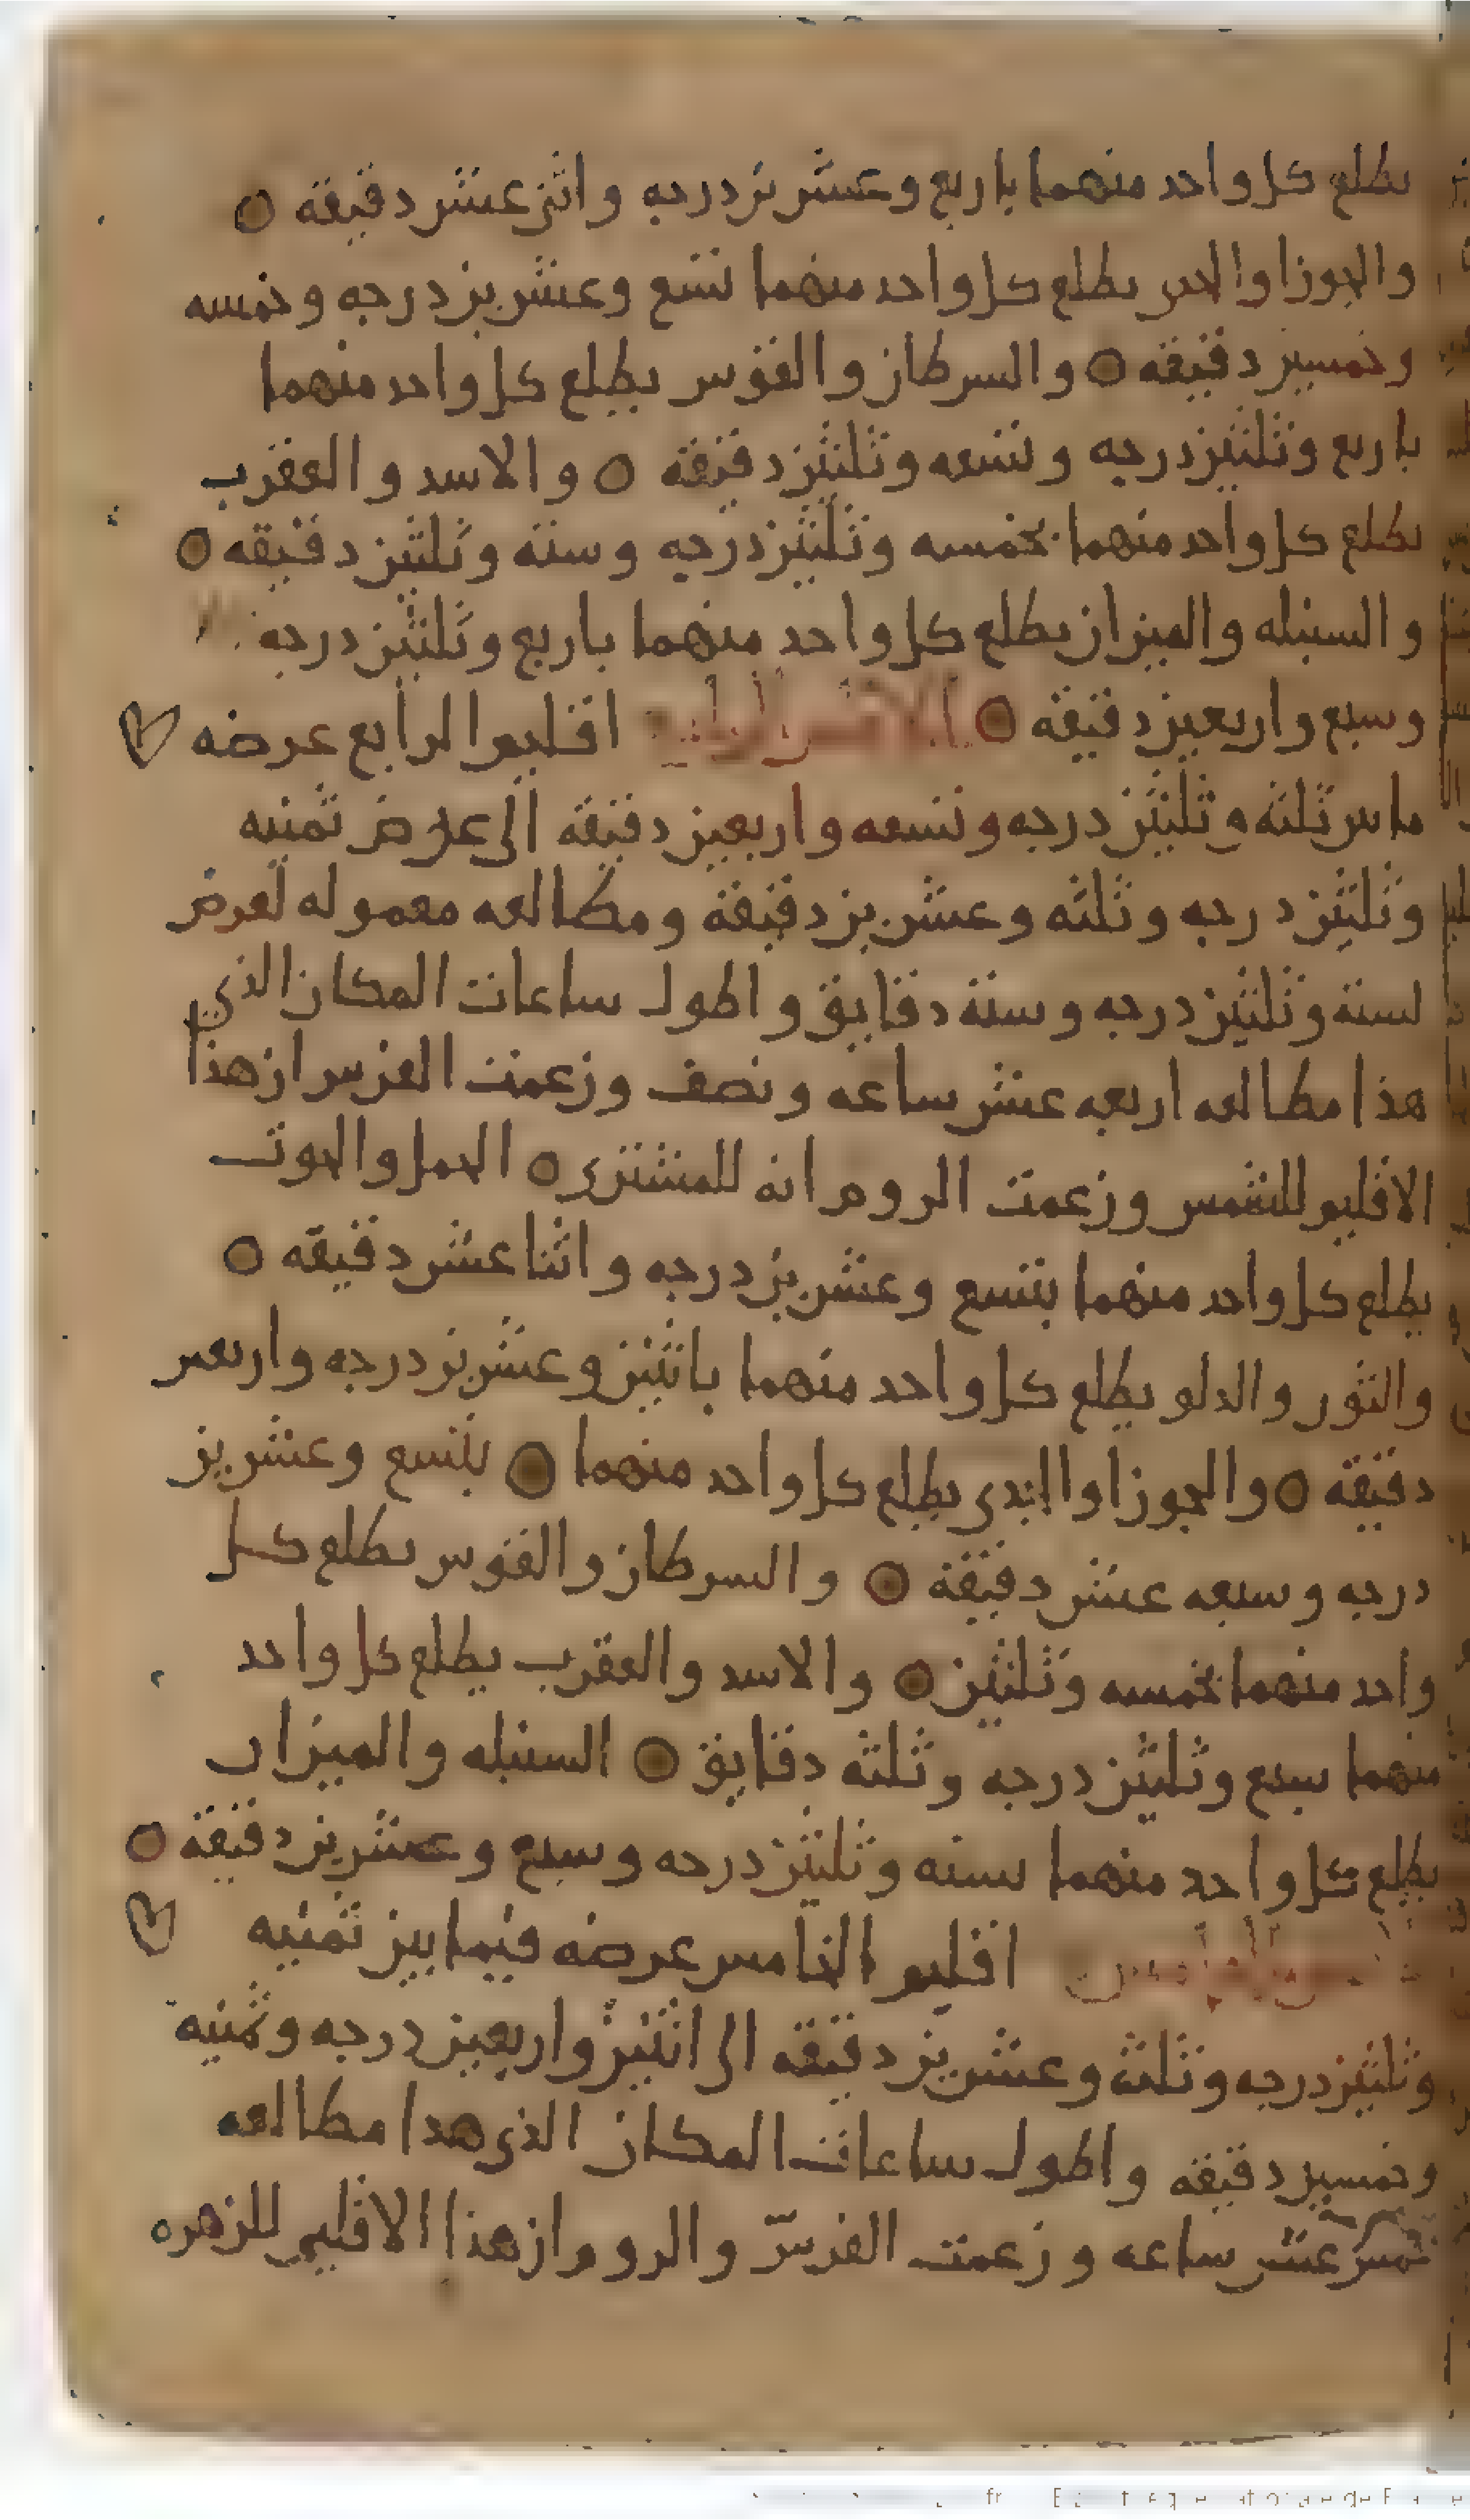 يطلع كل واحد منهما باربع وعشرين درجه واثنى عشر دقيقة
والجوزا والجدي يطلع كل واحد منهما تسع وعشرين درجه وخمسه
وخمسين دقيقه والسرطان والقوس يطلع كل واحد منهما
باربع وثلثين درجه وتسعه وثلثين دقيقة والاسد والعقرب
يطلع كل واحد منهما بخمسه وثلثين درجه وستة وثلثين دقيقه
والسنبله والميزان يطلع كل واحد منهما باربع وثلثين درجه
وسبع واربعين دقيقة اقليم الرابع عرضه
ما بين ثلثة وثلثين درجه وتسعه واربعين دقيقة الى عرض ثمنيه
وثلثين درجه وثلثه وعشرين دقيقة ومطالعه معموله لعرض
لستة وثلثين درجه وستة دقايق واطول ساعات المكان الذي
هذا مطالعه اربعه عشر ساعه ونصف وزعمت الفرس ان هذا
الاقليم للشمس وزعمت الروم انه للمشترى الحمل والحوت
يطلع كل واحد منهما بتسع وعشرين درجه واثنا عشر دقيقه
والثور والدلو يطلع كل واحد منهما باثنين وعشرين درجه واربعين
دقيقة والجوزا والجدى يطلع كل واحد منهما بتسع وعشرين
درجه وسبعه عشر دقيقة والسرطان والقوس يطلع كل
واحد منهما بخمسه وثلثين والاسد والعقرب يطلع كل واحد
منهما سبع وثلثين درجه وثلثه دقايق السنبله والميزان
يطلع كل واحد منهما بسته وثلثين درجه وسبع وعشرين دقيقة
اقليم الخامس عرضه فيما بين ثمنيه
وثلثين درجه وثلث وعشرين دقيقه الى اثنين واربعين درجه وثمنيه
وخمسين دقيقه واطول ساعات المكان الذى هذا مطالعه
خمس عشر ساعه وزعمت الفرس والروم ان هذا الاقليم للزهره